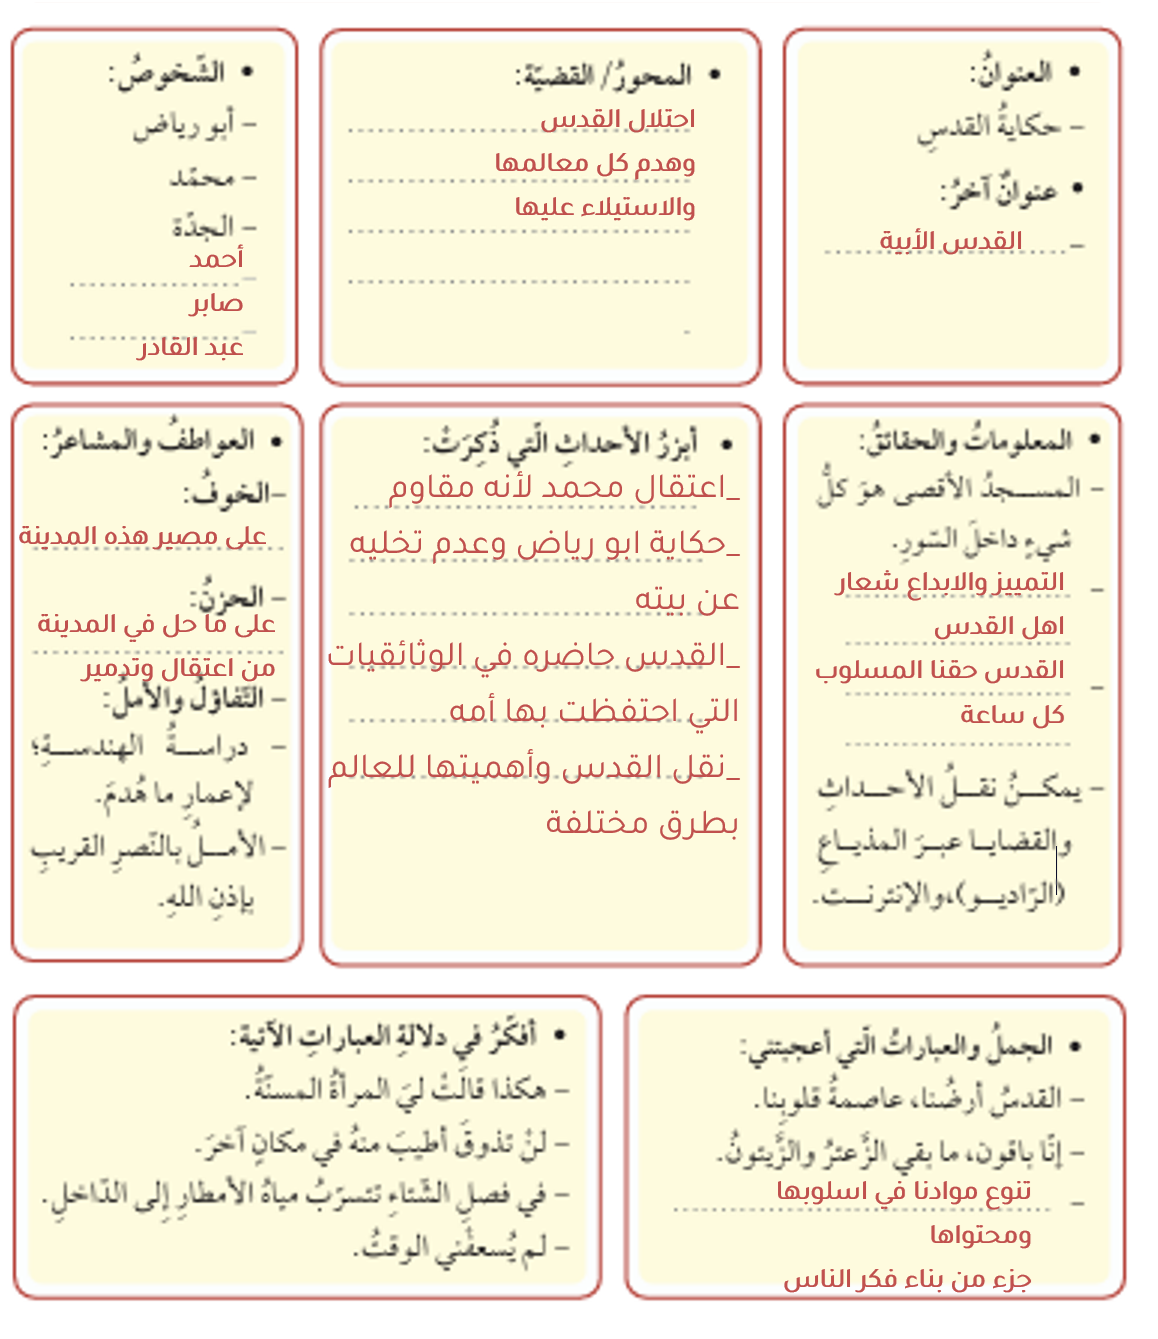 • العنوانُ:
– حكايةُ القدسِ
• عنوانٌ آخرُ:
– القدس الأبية
• المحورُ/ القضيّة:
احتلال القدس
وهدم كل معالمها
والاستيلاء عليها
• الشّخوصُ:
– أبو رياض
– محمّد
– الجدّة
أحمد
صابر
عبد القادر
• المعلوماتُ والحقائقُ:
– المسـجدُ الأقصى هوَ كلُّ
شيءٍ داخلَ السّورِ.
– التمييز والابداع شعار
اهل القدس
– القدس حقنا المسلوب
كل ساعة
– يمكـنُ نقـلُ الأحـداثِ
والقضايـا عبـرَ المذيـاعِ
(الرّاديـو)،والإنترنـت.
• أبرزُ الأحداثِ الّتي ذُكِرَتْ:
_اعتقال محمد لأنه مقاوم
_حكاية ابو رياض وعدم تخليه
عن بيته
_القدس حاضره في الوثائقيات
التي احتفظت بها أمه
_نقل القدس وأهميتها للعالم
بطرق مختلفة
• العواطفُ والمشاعرُ:
–الخوفُ:
على مصير هذه المدينة
– الحزنُ:
على ما حل في المدينة
من اعتقال وتدمير
– التّفاؤلُ والأملُ:
– دراسـةُ الهندسـةِ؛
لإعمارِ ما هُدمَ.
– الأمـلُ بالنّصرِ القريبِ
بإذنِ اللهِ.
• الجملُ والعباراتُ الّتي أعجبتني:
– القدسُ أرضُنا، عاصمةُ قلوبِنا.
– إنّا باقون، ما بقي الزَّعترُ والزَّيتونُ.
– تنوع موادنا في اسلوبها
ومحتواها
جزء من بناء فكر الناس
• أفكّرُ في دلالةِ العباراتِ الآتية:
– هكذا قالَتْ ليَ المرأةُ المسنّةُ.
– لنْ تذوقَ أطيبَ منهُ في مكانٍ آخرَ.
– في فصلِ الشّتاءِ تتسرّبُ مياهُ الأمطارِ إلى الدّاخلِ.
– لم يُسعفْني الوقتُ.